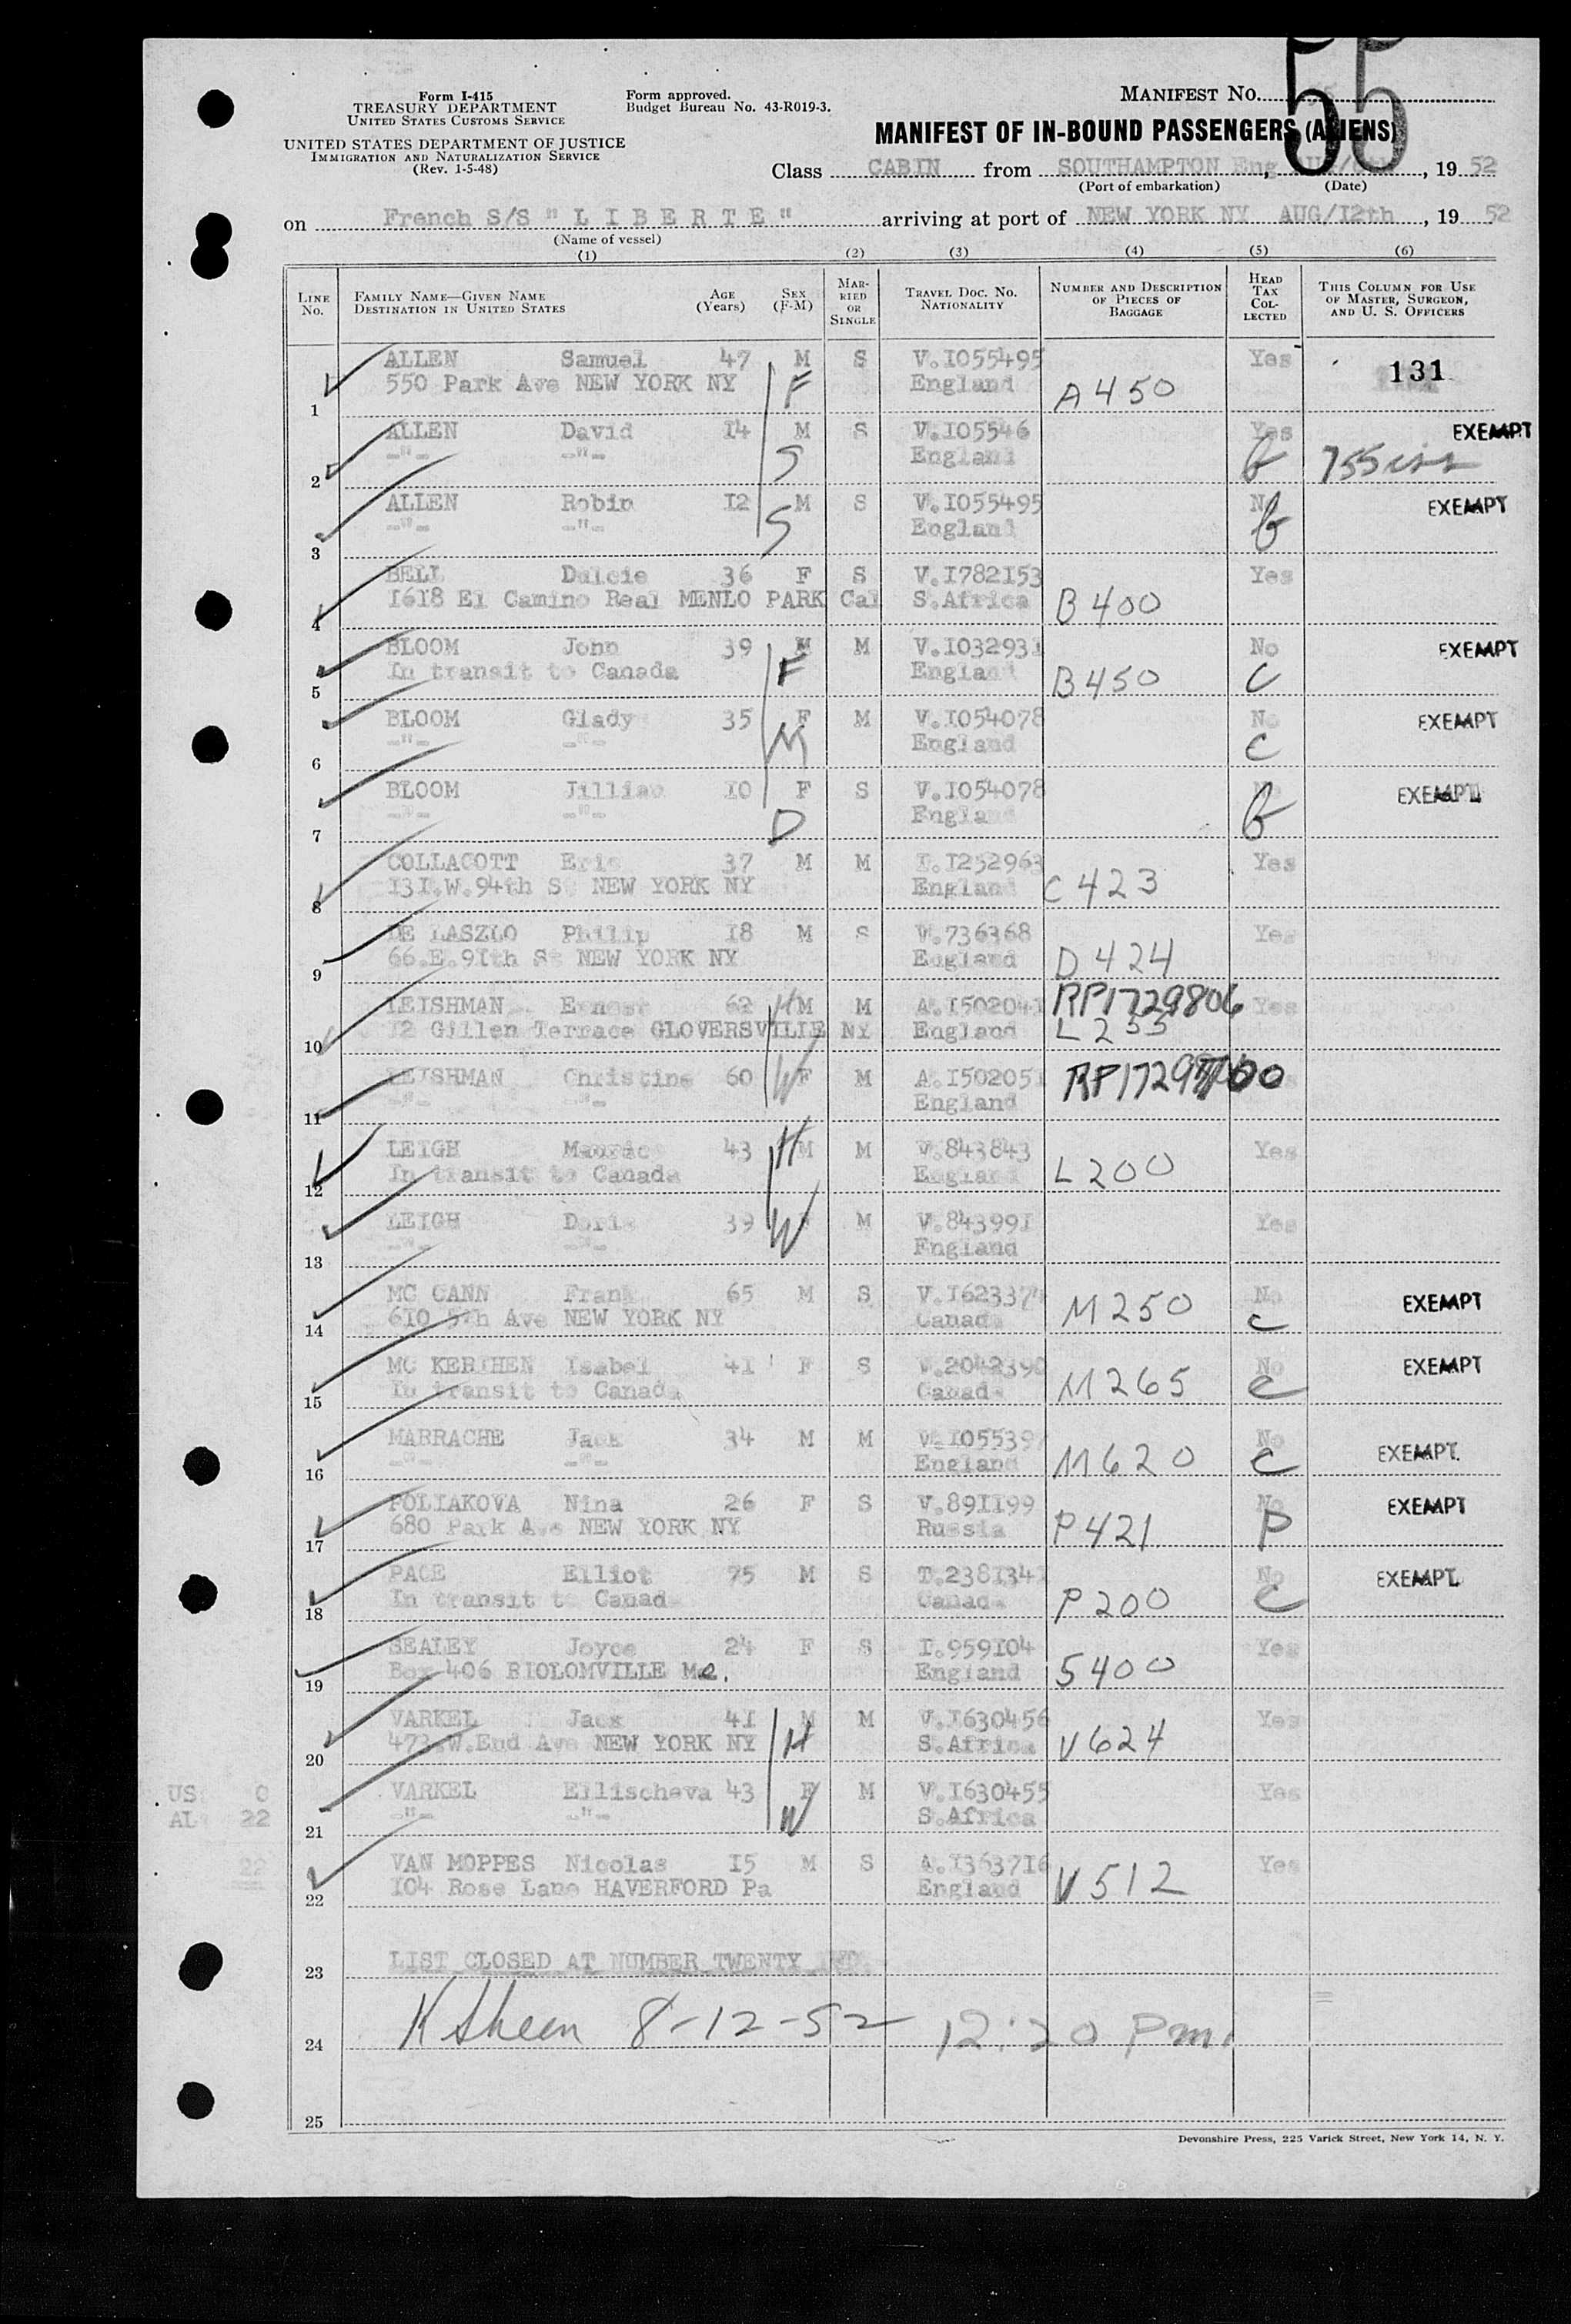 55
Form I-415
TREASURY DEPARTMENT
UNITED STATES CUSTOMS SERVICE
UNITED STATES DEPARTMENT OF JUSTICE
IMMIGRATION AND NATURALIZATION SERVICE
(Rev. 1-5-48)
Form approved.
Budget Bureau No. 43-R019-3.
MANIFEST NO.
MANIFEST OF IN-BOUND PASSENGERS (ALIENS)
Class CABIN from SOUTHAMPTON Eng , 19 52
(Port of embarkation) (Date)
on French S/S " L I B E R T E " arriving at port of NEW YORK NY AUG/12th , 19 52
(Name of vessel)
(1) (2) (3) (4) (5) (6)
LINE NO. FAMILY NAME—GIVEN NAME DESTINATION IN UNITED STATES AGE (Years) SEX (F-M) MARRIED OR SINGLE TRAVEL DOC. NO. NATIONALITY NUMBER AND DESCRIPTION OF PIECES OF BAGGAGE HEAD TAX COLLECTED THIS COLUMN FOR USE OF MASTER, SURGEON, AND U. S. OFFICERS
ALLEN Samuel 47 M S V.1055495 Yes 131
1 550 Park Ave NEW YORK NY F England A450
ALLEN David 14 M S V.105546 Yes EXEMPT
2 -"- -"- S England
ALLEN Robin 12 M S V.1055495 No EXEMPT
3 -"- -"- S England
BELL Dulcie 36 F S V.1782153 Yes
4 1618 El Camino Real MENLO PARK Cal S.Africa B400
BLOOM John 39 M M V.1032931 No EXEMPT
5 In transit to Canada F England B450 C
BLOOM Glady 35 F M V.1054078 No EXEMPT
6 -"- -"- M England C
BLOOM Jillian 10 F S V.1054078 EXEMPT
7 -"- -"- D England
COLLACOTT Eric 37 M M I.1252963 Yes
8 131.W.94th St NEW YORK NY England C423
DE LASZLO Philip 18 M S V.736368 Yes
9 66.E.91th St NEW YORK NY England D424
LEISHMAN Ernest 62 H M M A.1502041 RP1729806 Yes
10 12 Gillen Terrace GLOVERSVILLE NY England L255
LEISHMAN Christine 60 W F M A.1502051
11 -"- -"- England
LEIGH Maurice 43 H M M V.843843 Yes
12 In transit to Canada England L200
LEIGH Doris 39 W M V.843991 Yes
13 -"- -"- England
MC CANN Frank 65 M S No EXEMPT
14 610 5th Ave NEW YORK NY Canada M250 C
MC KERIHEN Isabel 41 F S V.2042390 No EXEMPT
15 In transit to Canada Canada M265 C
MARRACHE Jack 34 M M V.105539 No EXEMPT
16 -"- -"- England M620 C
POLIAKOVA Nina 26 F S V.891199 No EXEMPT
17 680 Park Ave NEW YORK NY Russia P421 P
PACE Elliot 75 M S T.2381341 No EXEMPT
18 In transit to Canad Canada P200 C
SEALEY Joyce 24 F S I.959104 Yes
19 Box 406 BIOLOMVILLE Me. England S400
VARKEL Jack 41 M M V.1630456 Yes
20 473.W.End Ave NEW YORK NY H S.Africa V624
VARKEL Ellischeva 43 F M V.1630455 Yes
21 -"- -"- W S.Africa
US 0
AL 22
22
VAN MOPPES Nicolas 15 M S A.1363716 Yes
22 104 Rose Lane HAVERFORD Pa England V512
23 LIST CLOSED AT NUMBER TWENTY TWO.
24 K Sheen 8-12-52 12:20 Pm.
25
Devonshire Press, 225 Varick Street, New York 14, N. Y.